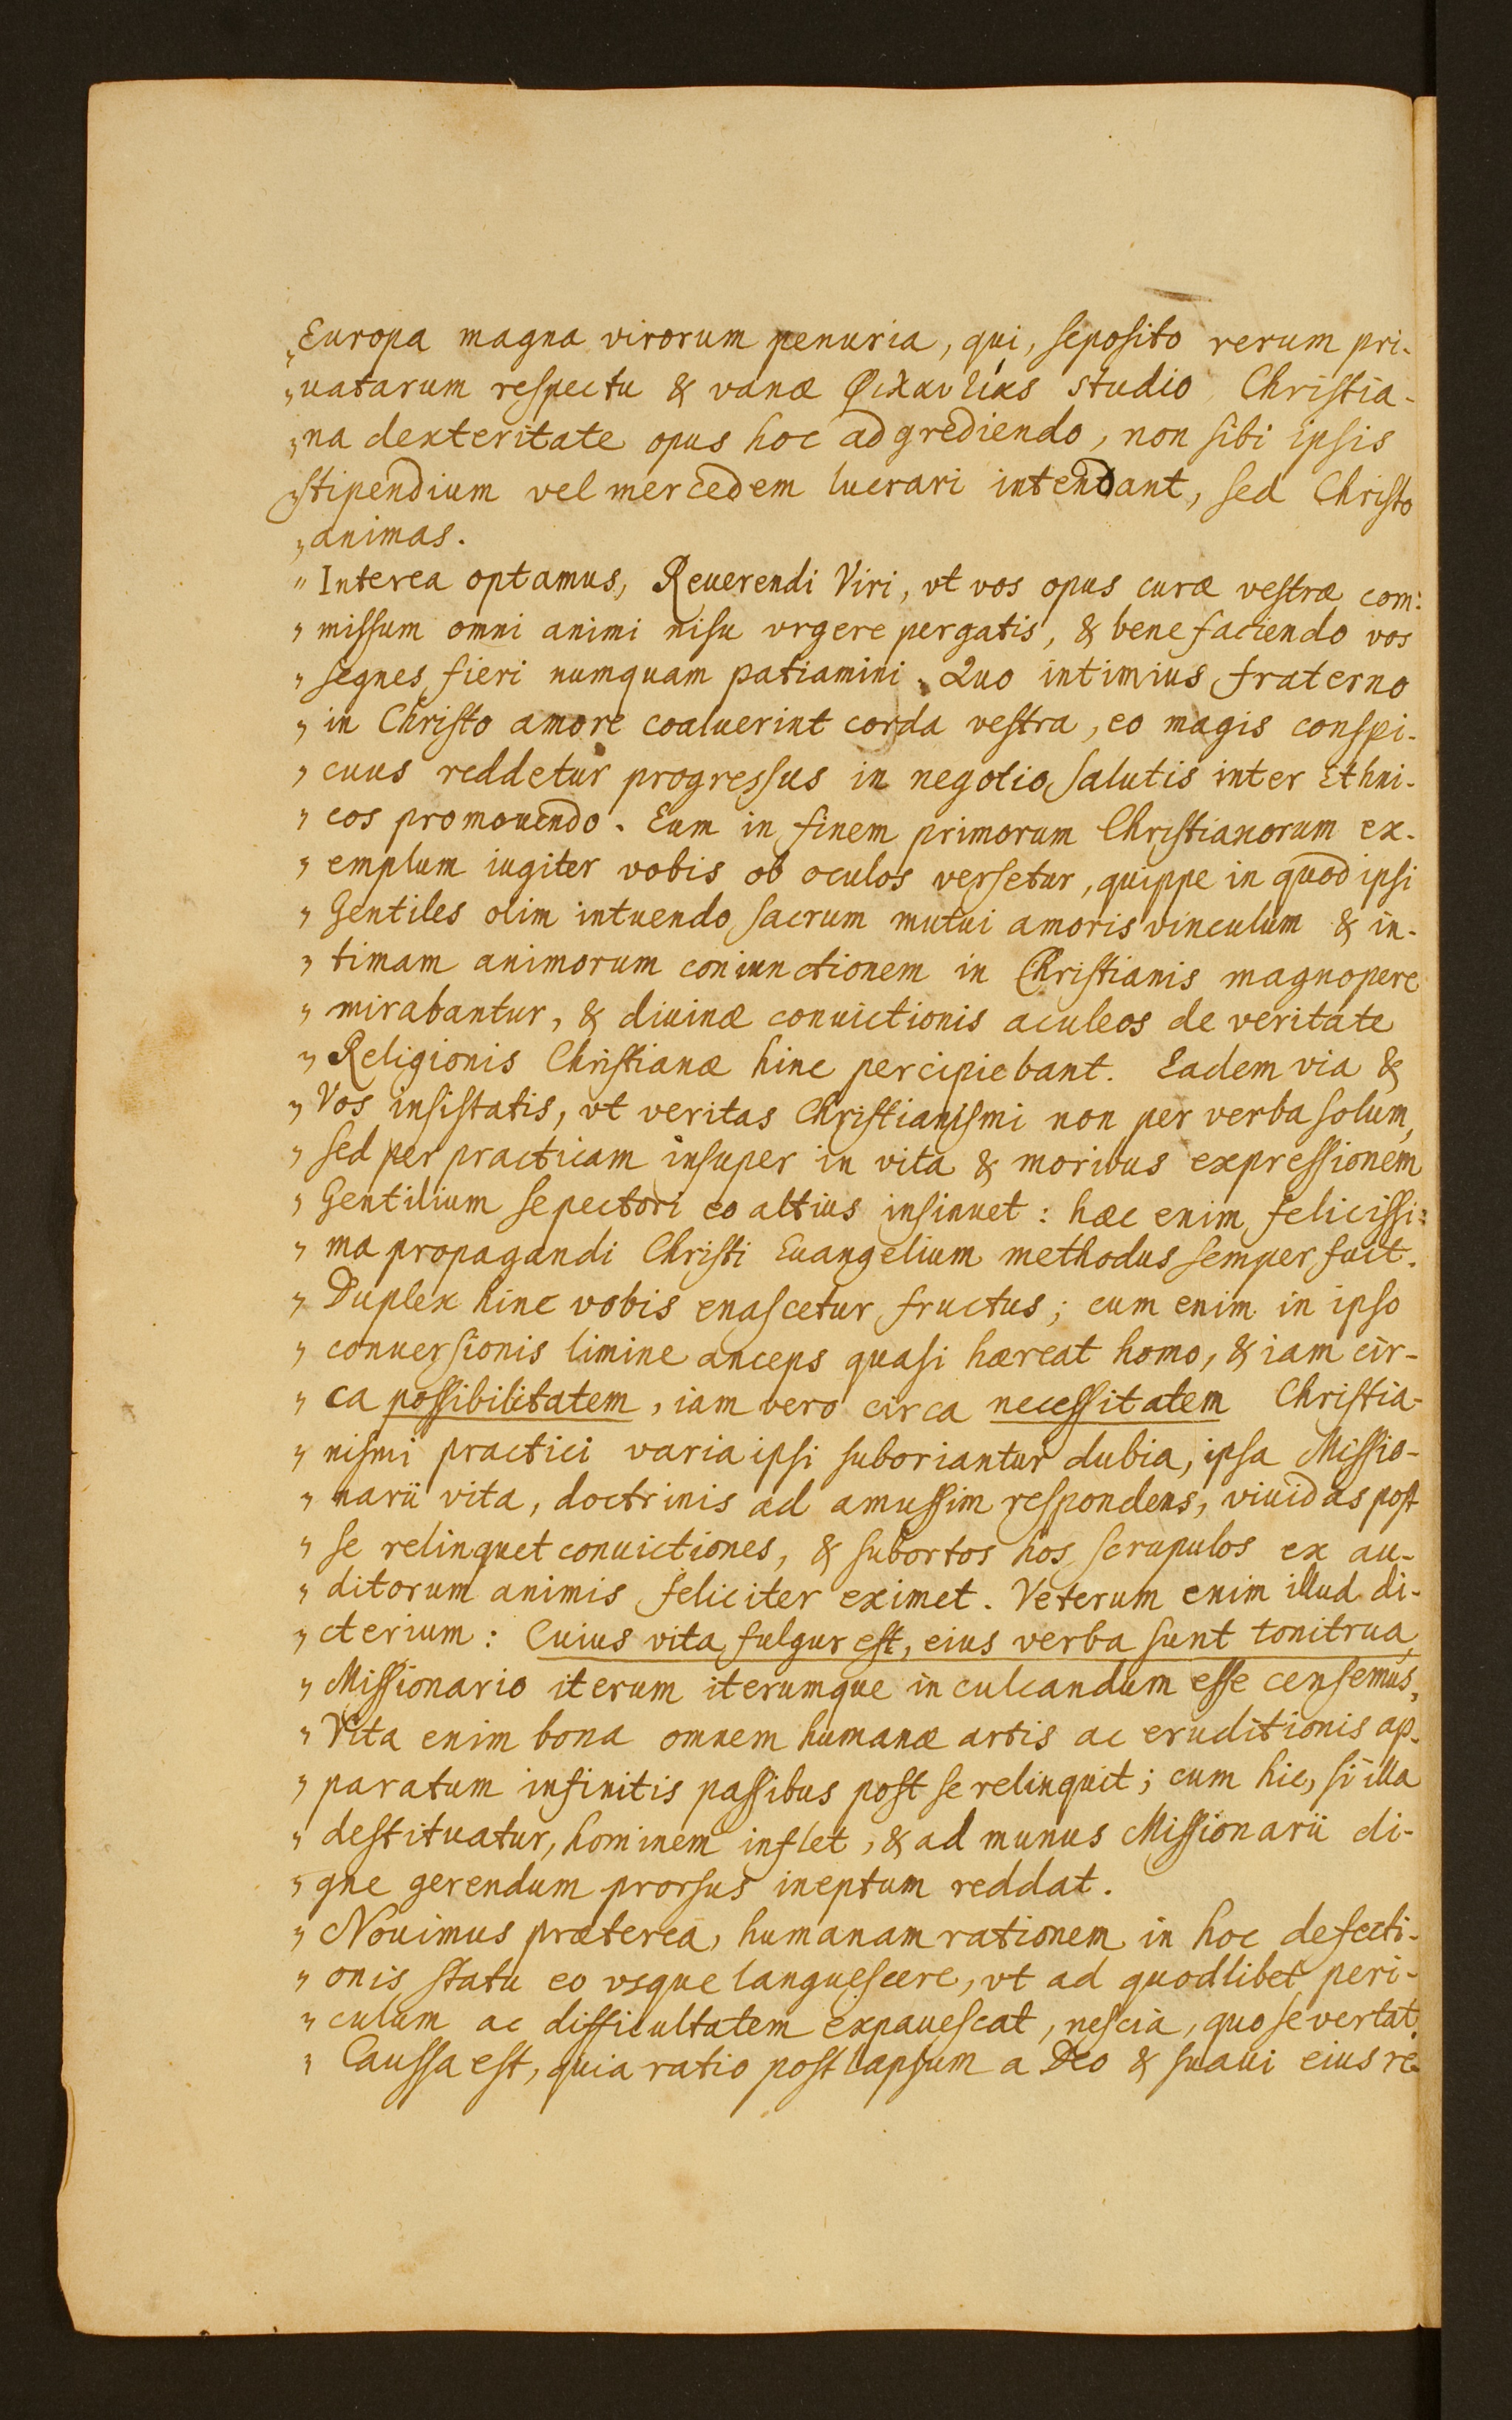 „Europa magna virorum penuria, qui, seposito rerum pri-
„uatarum respectu & vanæ Φιλαυτίας studio, Christia-
„na dexteritate opus hoc adgrediendo, non sibi ipsis
„stipendium vel mercedem lucrari intendant, sed Christo
„animas.
„Interea optamus, Reuerendi Viri, vt vos opus curæ vestræ com:
„missum omni animi nisu vrgere pergatis, & bene faciendo vos
„segnes fieri numquam patiamini. Quo intimius fraterno
„in Christo amore coaluerint corda vestra, eo magis conspi-
„cuus reddetur progressus in negotio salutis inter Ethni-
„cos promouendo. Eum in finem primorum Christianorum ex-
„emplum iugiter vobis ob oculos versetur, quippe in quod ipsi
„Gentiles olim intuendo sacrum mutui amoris vinculum & in-
„timam animorum coniunctionem in Christianis magnopere
„mirabantur, & diuinæ conuictionis aculeos de veritate
„Religionis Christianæ hinc percipiebant. Eadem via &
„Vos insistatis, vt veritas Christianismi non per verba solum,
„sed per practicam insuper in vita & moribus expressionem
„Gentilium se pectori eo altius insinuet: hæc enim felicissi:
„ma propagandi Christi Euangelium methodus semper fuit.
„Duplex hinc vobis enascetur fructus; cum enim in ipso
„conuersionis limine anceps quasi hæreat homo, & iam cir-
„ca possibilitatem, iam vero circa necessitatem Christia-
„nismi practici varia ipsi suboriantur dubia, ipsa Missio-
„narii vita, doctrinis ad amussim respondens, viuidas post
„se relinquet conuictiones, & subortos hos scrupulos ex au-
„ditorum animis feliciter eximet. Veterum enim illud di-
„cterium: Cuius vita fulgur est, eius verba sunt tonitrua,
„Missionario iterum iterumque inculcandum esse censemus,
„Vita enim bona omnem humanæ artis ac eruditionis ap-
„paratum infinitis passibus post se relinquit; cum hic, si illa
„destituatur, hominem inflet, & ad munus Missionarii di-
„gne gerendum prorsus ineptum reddat.
„Nouimus præterea, humanam rationem in hoc defecti-
„onis statu eo vsque languescere, vt ad quodlibet peri-
„culum ac difficultatem expauescat, nescia, quo se vertat.
„Caussa est, quia ratio post lapsum a Deo & suaui eius re-